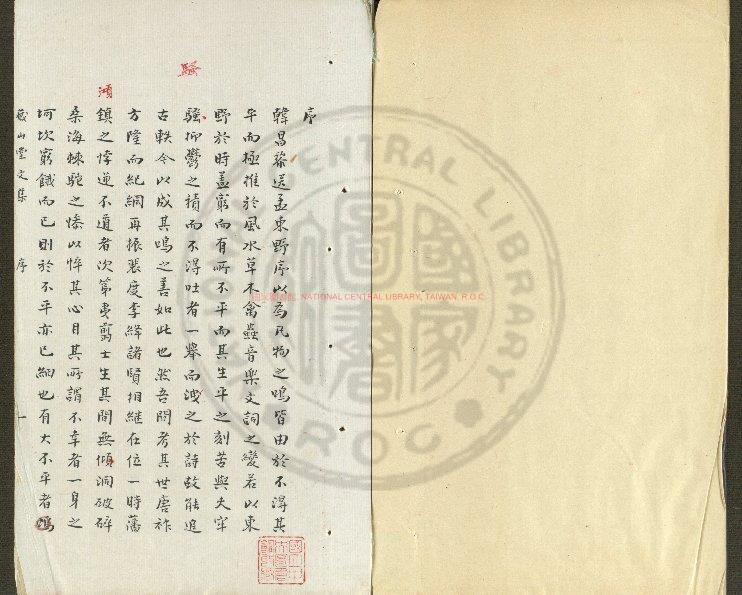 序
韓昌黎送孟東野序以為凡物之鳴皆由於不得其
平而極推於風水草木禽蟲音樂文詞之變若以東
野於時蓋窮而有所不平而其生平之刻苦與夫牢
騷抑鬱之積而不得吐者一舉而洩之於詩故能追
古軼今以成其鳴之善如此也然吾間考其世唐祚
方隆而紀綱再振裴度李絳諸賢相繼在位一時藩
鎮之悖逆不道者次第夷翦士生其間無傾洞破碎
桑海棘駝之慘以怵其心目其所謂不幸者一身之
坷坎窮餓而已則於不平亦已細也有大不平者鳴
山堂文集 序 一
騷
澒
NATIONAL CENTRAL LIBRARY, TAIWAN R.O.C
CENTRAL LIBRARY
ROC